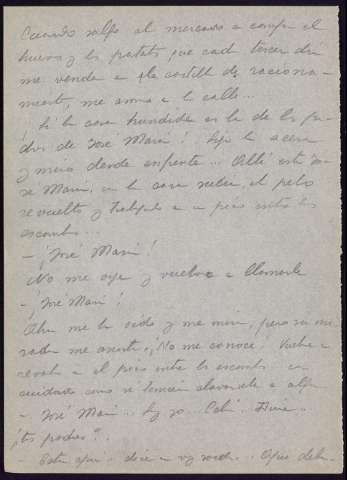 Cuando salgo al mercado a comprar el
huevo y las patatas que cada tercer día
me venden a la cartilla de raciona-
miento, me asomo a la calle...
¡Si la casa hundida es la de los pa-
dres de José María! Bajo la acera
y miro desde enfrente... Allí está Jo-
sé María, en la cara, el pelo
revuelto y entre los
escombros...
- ¡José María!
No me oye y vuelvo a llamarle
- ¡José María!
Ahora me ha oído y me mira, pero su mi-
rada me asusta. ¡No me conoce! Vuelve a
el entre los escombros con
cuidado como si temiera a algo
- José María... Soy yo... Celia. Dime...
¿tus padres?
- Están aquí - dice a voz... Aquí deba-